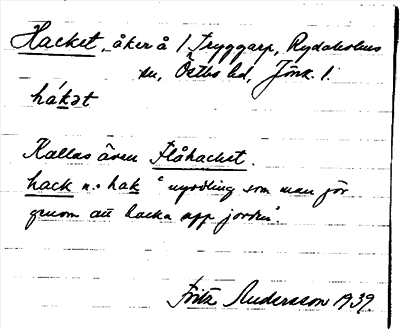 Hacket, åker å 1 Tryggarp, Rydaholms
sn, Östbo hd, Jönk. l.
hákət
Kallas även Flåhacket.
hack n. hak "nyodling som man gör
genom att hacka upp jorden"
Fritz Andersson 1939